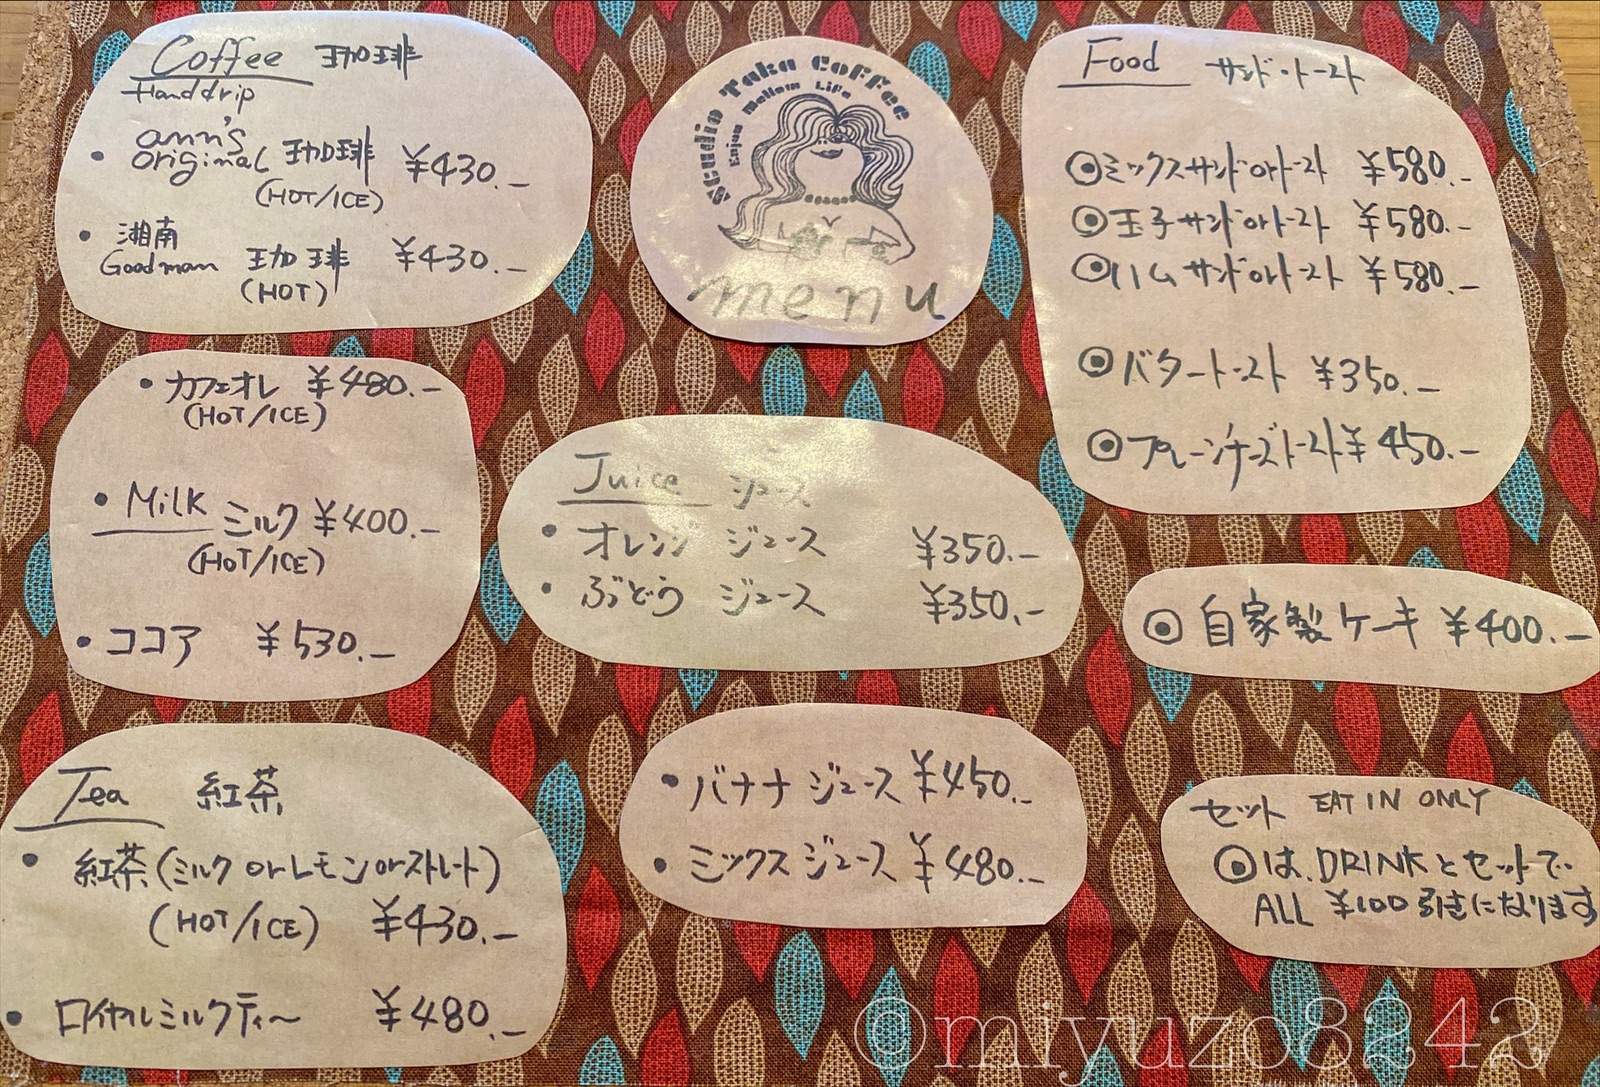 Coffee 珈琲
Handdrip
・ann's original 珈琲 ¥430.-
(HOT/ICE)
・湘南 Goodman 珈琲 ¥430.-
(HOT)
・カフェオレ ¥480.-
(HOT/ICE)
・Milk ミルク ¥400.-
(HOT/ICE)
・ココア ¥530.-
Tea 紅茶
・紅茶(ミルク or レモン or ストレート)
(HOT/ICE) ¥430.-
・ロイヤルミルクティー ¥480.-
Studio Taka Coffee
Enjoy Mellow Life
menu
Juice ジュース
・オレンジ ジュース ¥350.-
・ぶどう ジュース ¥350.-
・バナナ ジュース ¥450.-
・ミックス ジュース ¥480.-
Food サンド・トースト
◉ミックスサンド or トースト ¥580.-
◉玉子サンド or トースト ¥580.-
◉ハムサンド or トースト ¥580.-
◉バタートースト ¥350.-
◉プレーンチーズトースト ¥450.-
◉自家製ケーキ ¥400.-
セット EAT IN ONLY
◉は、DRINKとセットで
ALL ¥100引きになります
©miyuzo8242